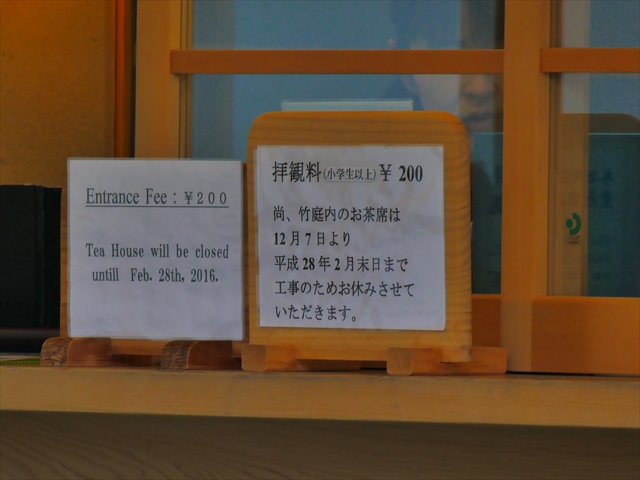 Entrance Fee : ￥200
Tea House will be closed
untill Feb. 28th, 2016.
拝観料(小学生以上)￥200
尚、竹庭内のお茶席は
12月7日より
平成28年2月末日まで
工事のためお休みさせて
いただきます。